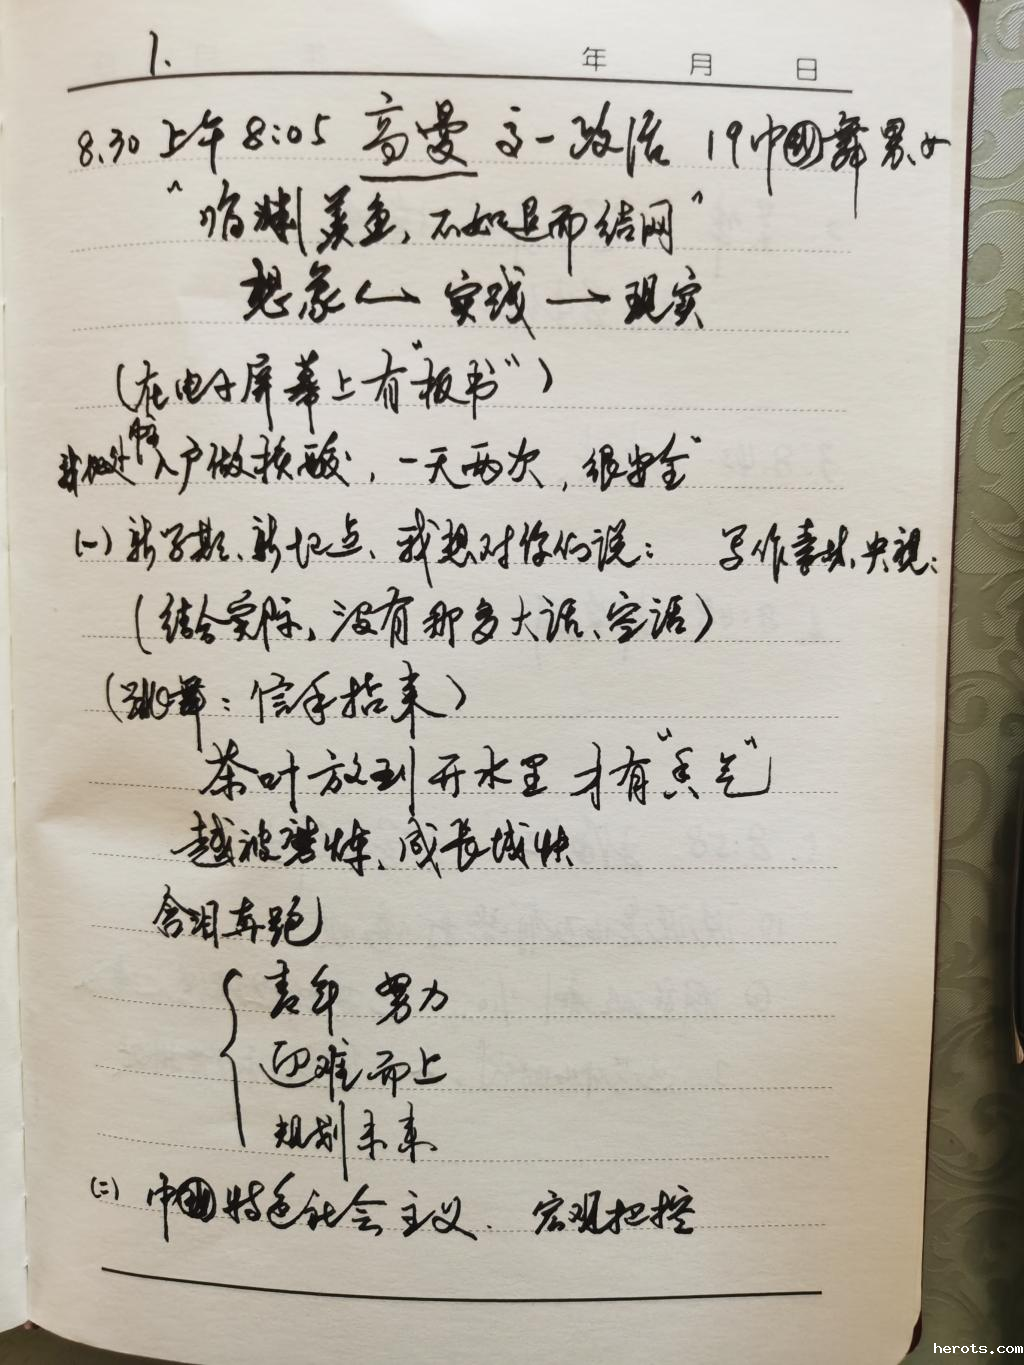 1.
年 月 日
8.30 上午 8:05 高曼 高一政治 19中国舞男、女
"临渊羡鱼,不如退而结网"
想象 ← 实践 → 现实
(在电子屏幕上有"板书")
入户做核酸,一天两次,很安全"
(一) 新学期、新起点、我想对你们说: 写作素材、央视:
(结合实际,没有那多大话、空话)
(跳舞:信手拈来)
茶叶放到开水里才有"香气"
越被磨炼、成长越快
含泪奔跑
青年 努力
迎难而上
规划未来
(二) 中国特色社会主义. 宏观把控
herots.com